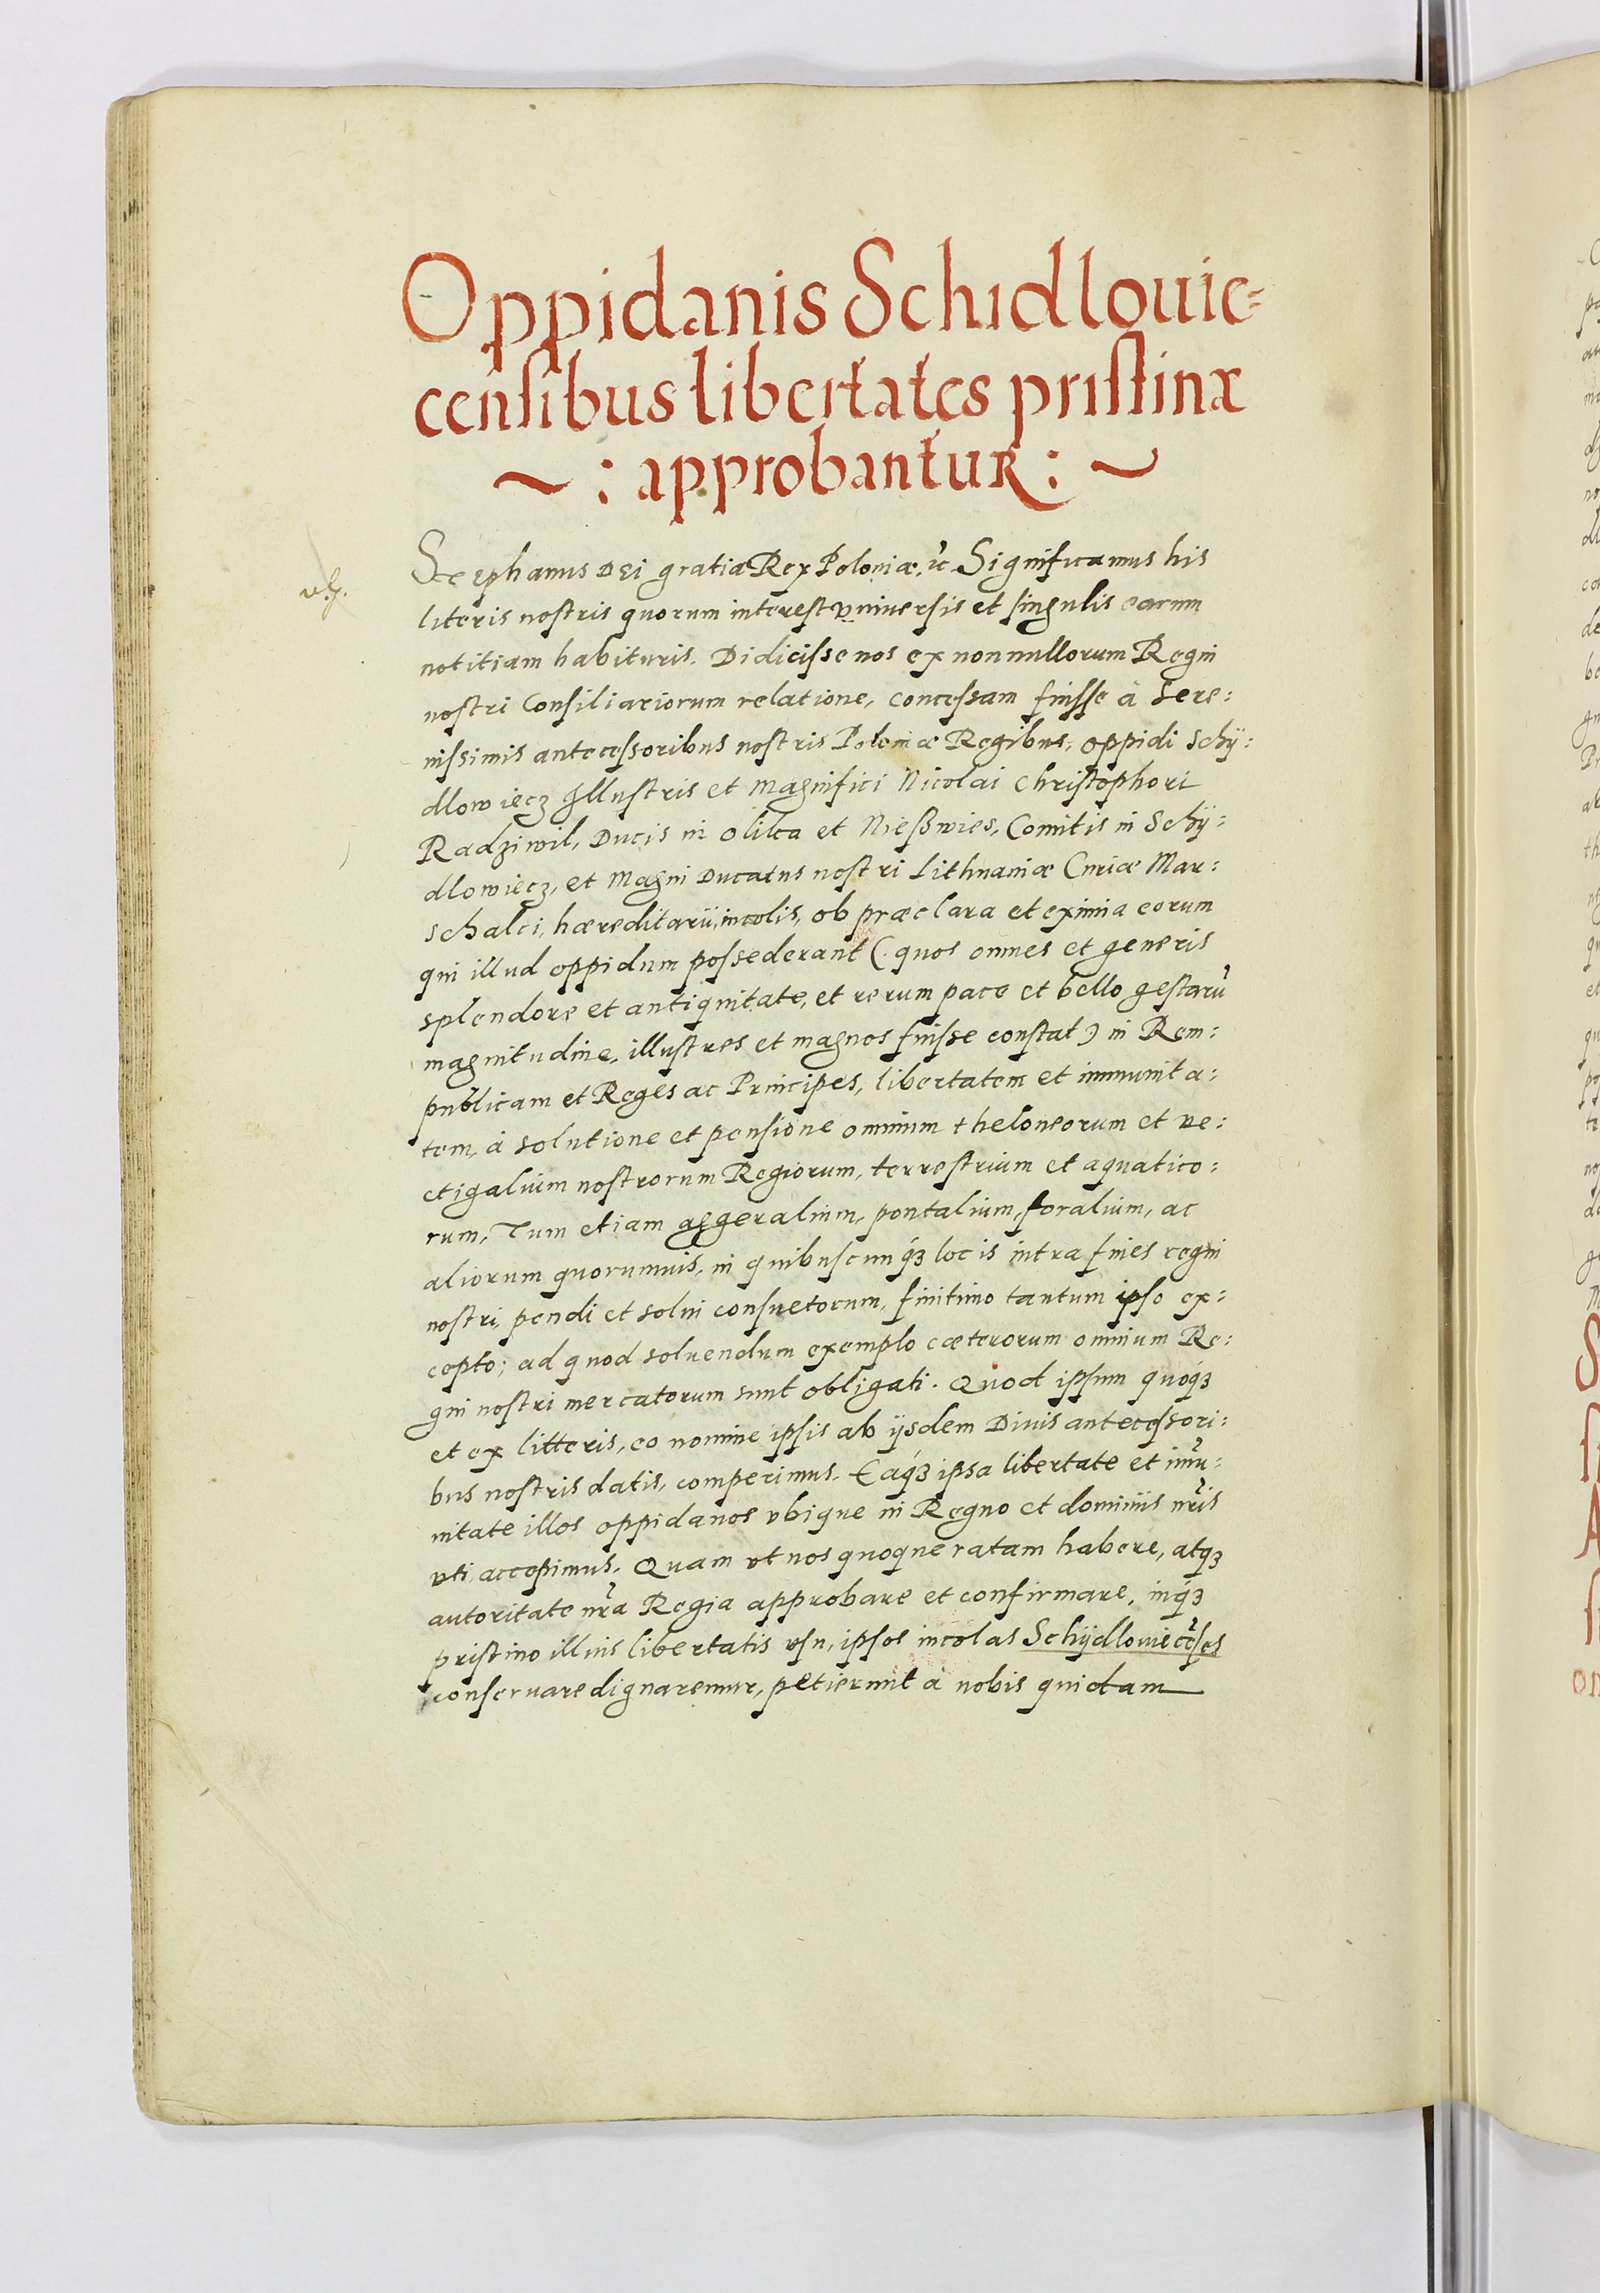 Oppidanis Schidlouic=
censibus libertates pristinæ
~ : approbantur : ~
Stephanus DEI gratia Rex Poloniæ, &c. Significamus his
literis nostris quorum interest vniuersis et singulis earum
notitiam habituris. Didicisse nos ex nonnullorum Regni
nostri Consiliariorum relatione, concessam fuisse à Sere:
nissimis antecessoribus nostris Poloniæ Regibus, oppidi Schÿ:
dlowiecz Illustris et Magnifici Nicolai Christophori
Radziwil, Ducis in Olika et Nießwies, Comitis in Schÿ:
dlowiecz, et Magni Ducatus nostri Lithuaniæ Curiæ Mar:
schalci, hæreditarii, incolis, ob præclara et eximia eorum
qui illud oppidum possederant (quos omnes et generis
splendore et antiquitate, et rerum pace et bello gestarũ
magnitudine, illustres et magnos fuisse constat) in Rem:
publicam et Reges ac Principes, libertatem et immunita:
tem, à solutione et pensione omnium theloneorum et ve:
ctigalium nostrorum Regiorum, terrestrium et aquatico:
rum, Tum etiam aggeralium, pontalium, foralium, ac
aliorum quorumuis, in quibuscunqȝ locis intra fines regni
nostri, pendi et solui consuetorum, finitimo tantum ipso ex:
cepto; ad quod soluendum exemplo cæterorum omnium Re:
gni nostri mercatorum sunt obligati. Quod ipsum quoqȝ
et ex litteris, eo nomine ipsis ab ijsdem Diuis antecessori:
bus nostris datis, comperimus. Eaqȝ ipsa libertate et imũ:
nitate illos oppidanos vbique in Regno et dominiis nr̃is
vti accepimus. Quam vt nos quoque ratam habere, atqȝ
autoritate nr̃a Regia approbare et confirmare, inqȝ
pristino illius libertatis vsu, ipsos incolas Schÿdlouieccẽses
conseruare dignaremur, petierunt à nobis quidam